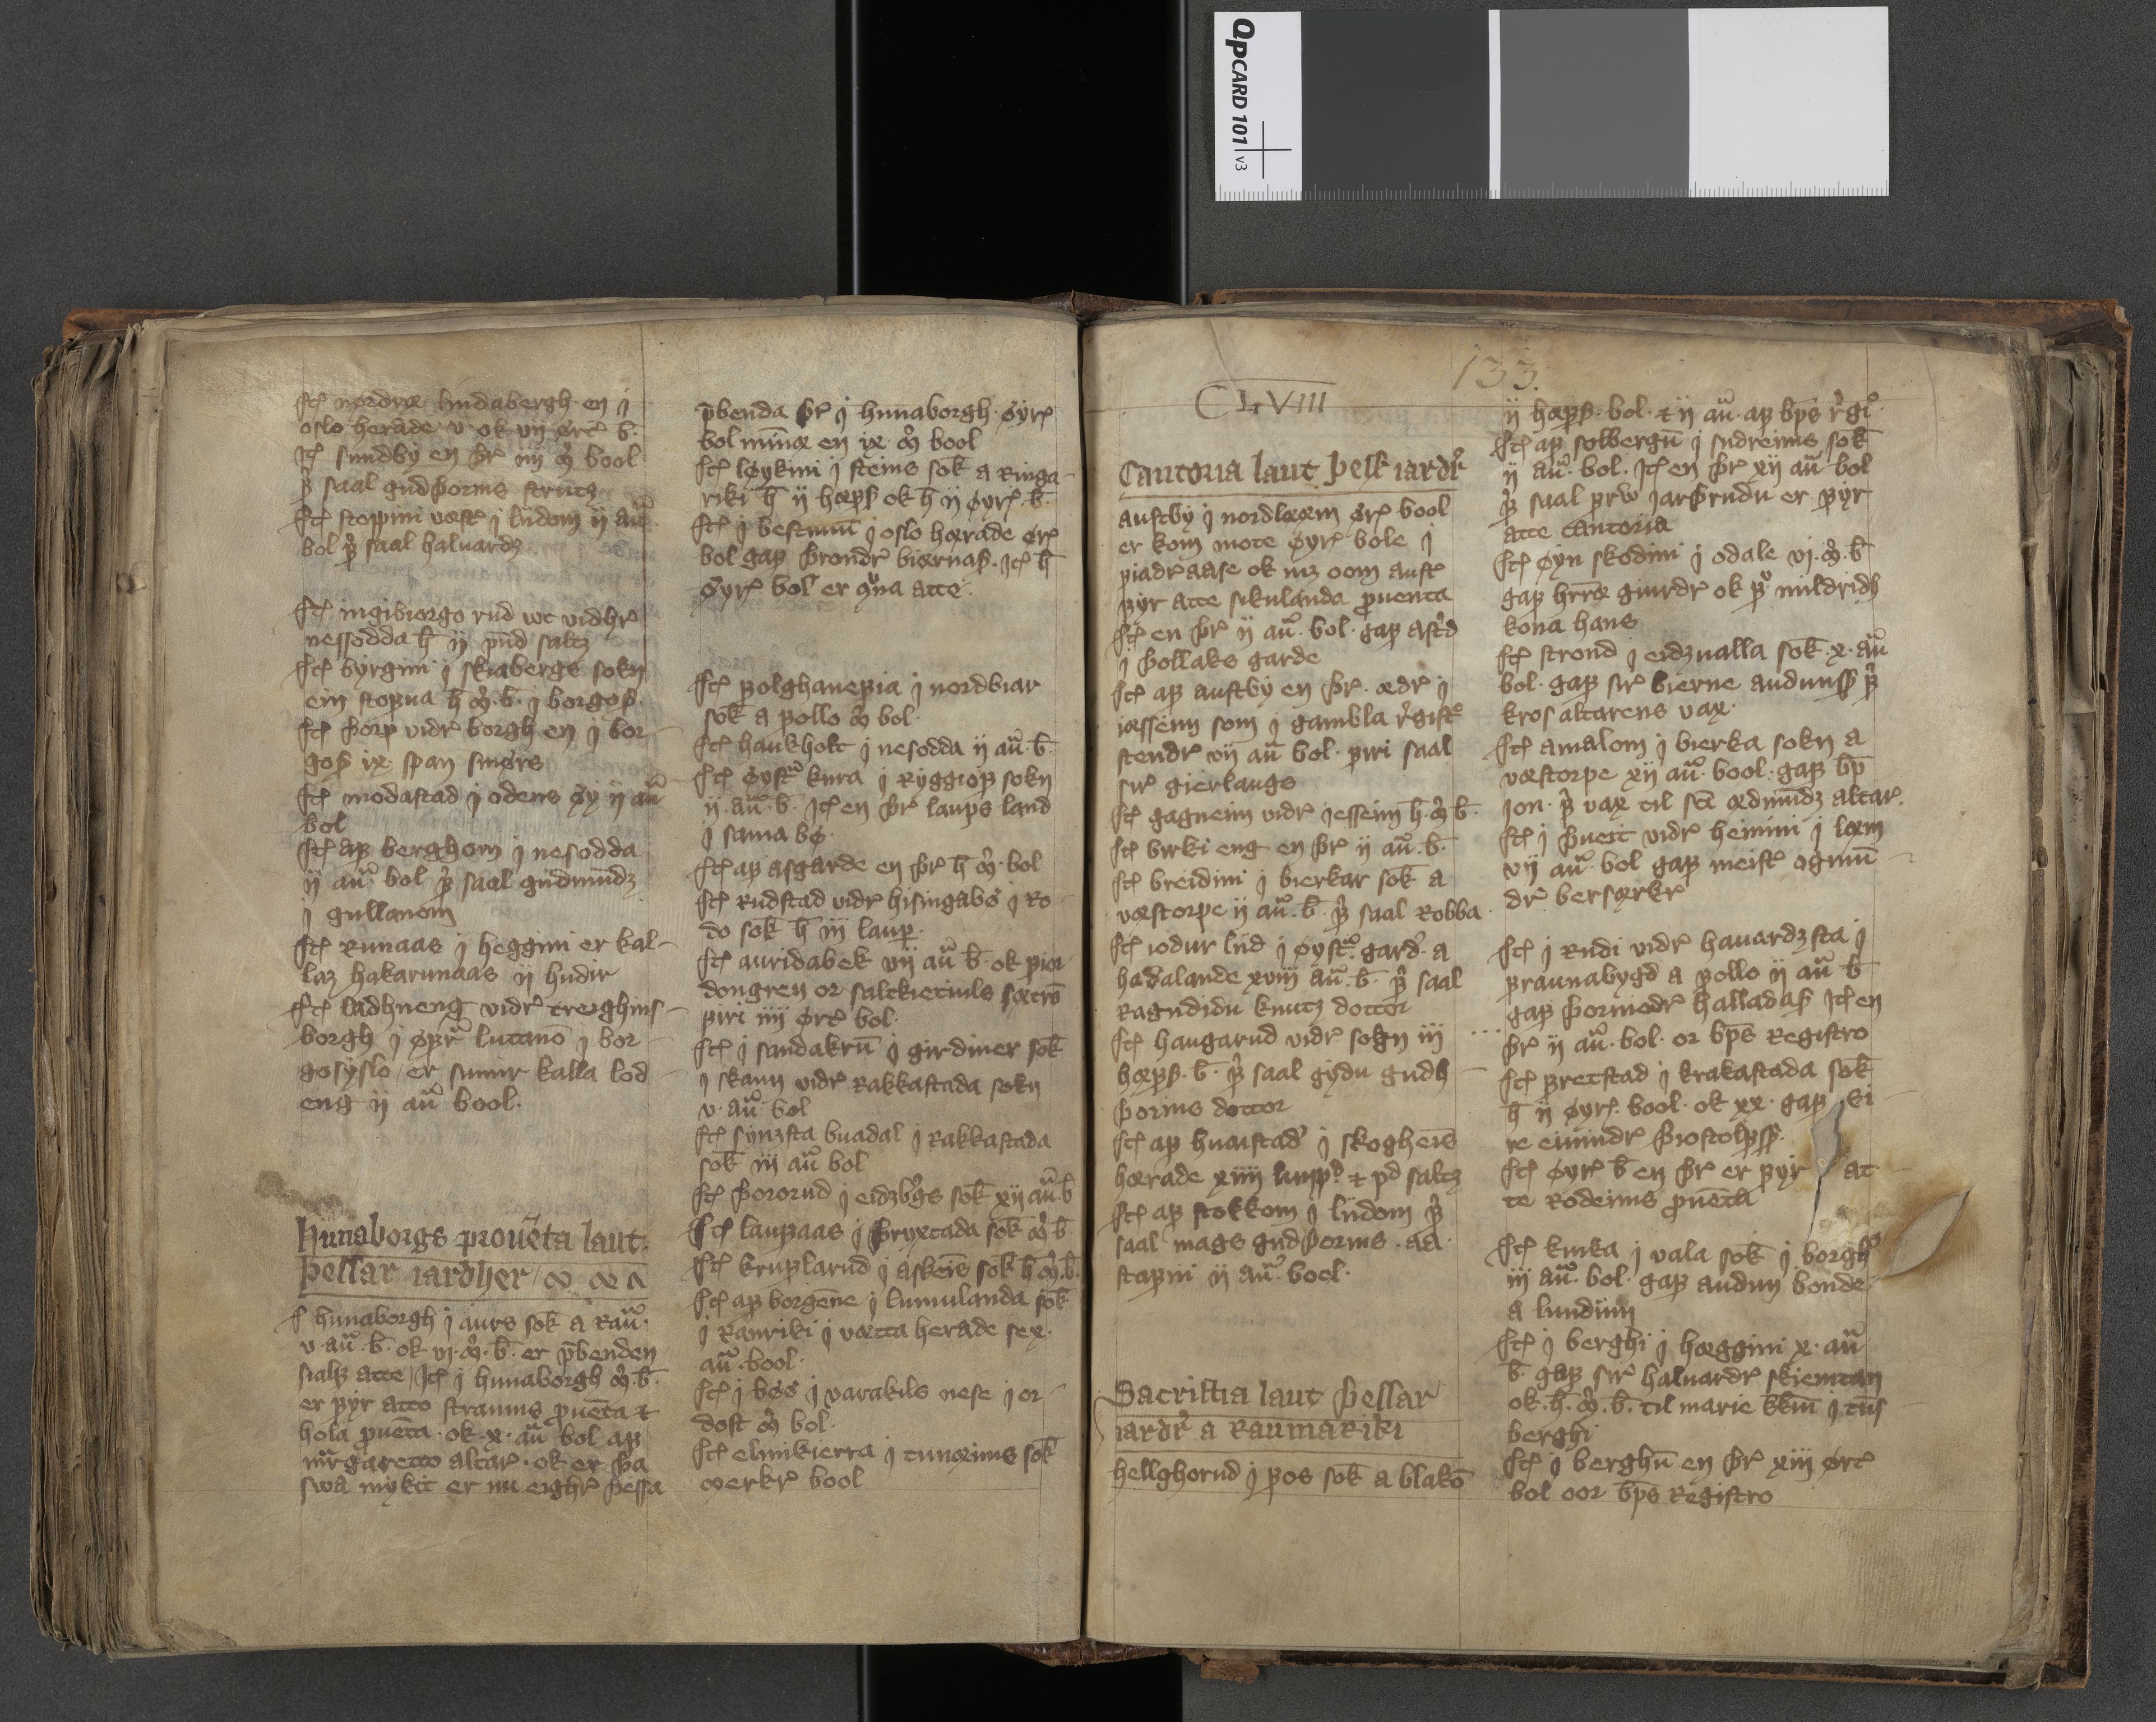 QPCARD 101 v3
Jtẽ nordræ lindabergh en j
oslo herade v ok vij ørt̃ b̄.
Jtẽ sundby en þr̃ iiij m̃ bool
f̃ saal gudþorms strutz
Jtẽ stoppini vastr̃ j lijdom ij au᷈
bol f̃ saal haluardz
Jtẽ ingibiorgo rud wt vidhr̃
nessodda h̄ ij pūd saltz
Jtẽ byrgini j skiabergs sokn
ein stofua h̄ m̃.b̄. j borgoß.
Jtẽ þorp vidr̃ borgh en j bor-
goß ix span smørs
Jtẽ modastad j odens øy ij au᷈
bol
Jtẽ af berghom j nesodda
ij au᷈ bol f̃ saal gudmūdz
j gullanom
Jtẽ Runaas j heggini er kal-
laz hakarunaas ij hudir
Jtẽ ladhneng vidr̃ treighins-
borgh j øfr̃ lutanō j bor-
gosyslo er sumir kalla lod-
eng ij au᷈ bool.
Hunaborgs prouēta laut
þessar iardher
J hunaborgh j aurs sok̄ a Rau᷈.
v.au᷈.b̄. ok vj.m̃.b̄. er p̄benden
sialf atte Jtẽ j hunaborgh m̃.b̄.
er fyr atto straums p̃uēta ⁊
hola p̃uēta.ok.x.au᷈ bol af
mr̃garetto altar̃.ok er þa
swa mykit er nu eighr̃ þessa
p̄benda þr̃ j hunaborgh.øyr̃
bol minnæ en ix.m̃ bool
Jtẽ løykini j steins sok̄ a Ringa-
riki h̄ ij hæfß ok h̄ ij øyr̃.b̄.
Jtẽ j bestimū j oslo hærade ør̃
bol gaf þrondr̃ biærnaß.Jtẽ h̄
øyr̃ bol er atte.
Jtẽ folghanefia j nordbiar
sok̄ a follo m̃ bol.
Jtẽ haukholt j nesodda ij au᷈.b̄.
Jtẽ øystr̃ kura j Ryggiof sokn
ij.au᷈.b̄. Jtẽ en þr̃ laups land
j sama bø.
Jtẽ af asgarde en þr̃ h̄ m̃.bol
Jtẽ Rudstad vidr̃ hisingabø j Ro-
do sok̄ h̄ iij laup.
Jtẽ auridabek vij au᷈ b̄.ok fior-
dongren or saltkietuils sætrō
firi iiij ørt̃ bol.
Jtẽ j sandakrū j girdiner sok̄
j skaun vidr̃ Rakkastada sokn
v.au᷈ bol
Jtẽ synzsta buadal j Rakkastada
sok̄ iij au᷈ bol
Jtẽ þororud j eidzb̃gs sok̄ xij au᷈.b̄
Jtẽ laupaas j þryxtada sok̄ m̃ b̄
Jtẽ kruplarud j askeis̄ sok̄ h̄ m̃.b̄.
Jtẽ af borgēne j lumulanda sok̄
j Ranriki j vætta herade sex.
au᷈.bool.
Jtẽ j bøø j varakils nese j or-
dost m̃ bol.
Jtẽ elinkierra j tunæims sok̄
verkr̃ bool
CLVIII
133.
Cantoria laut þessar iardr̃
austby j nordlæøm ør̃ bool
er kom mote øyr̃ bole j
fiadraase ok mz oom austr̃
fyr atte sikulanda p̃uenta
Jtẽ en þr̃ ij au᷈.bol.gaf ast̃d
j þollaks garde
Jtẽ af austby en þr̃.ædr̃ j
iæsseim som j gambla r̃gistr̃
stendr̃ vij au᷈ bol.firi saal
sir̃ gierlaugs
Jtẽ gagneim vidr̃ jesseim h̄.m̃ b̄.
Jtẽ birki eng en þr̃ ij au᷈.b̄.
Jtẽ breidini j bierkar sok̄ a
væstorpe ij au᷈.b̄. f̃ saal Robba
Jtẽ iodur liid j øystr̃ gard̃.a
hadalande xviij au᷈.b̄. f̃ saal
Ragndidu knutz dottor
Jtẽ haugarud vidr̃ sogn iij
hæfß.b̄. f̃ saal gydu gudh-
þorms dottor
Jtẽ af huaistad̃ j skogheis̄
hærade xiiij laupp̃ ⁊ pd saltz
Jtẽ af stokkom j lijdom f̃
saal mags gudþorms.aa.
stafni ij au᷈.bool.
Sacristia laut þessar
iardr̃ a RaumaRiki
hellghorud j fos sok̄ a blakō
ij hæfß.bol.⁊ ij au᷈.af b̄ps r̃gr̃.
Jtẽ af solbergū j sudreims sok̄
ij au᷈.bol.Jtẽ en þr̃ xij au᷈ bol
f̃ saal frw jarþrudu er fyr
atte cantoria
Jtẽ øyn skodini j odale vj.m̃.b̄
gaf hr̄ræ giurdr̃ ok f̃ mildridh
kona hans
Jtẽ strond j eidzualla sok̄.x.au᷈
bol.gaf sir̃ bierne audunss f̃
kros altarens vax.
Jtẽ amalom j bierka sokn a
væstorpe xij au᷈.bool.gaf b̄p
Jon.f̃ vax til sc̄i ædmūdz altar.
Jtẽ j þueit vidr̃ heimini j læm
vij au᷈.bol gaf meistr̃ ogmū-
dr̃ berserkr̃
Jtẽ j Rudi vidr̃ hauardzsta j
fraunabygd a follo ij au᷈ b̄
gaf þormodr̃ halladaß Jtẽ en
þr̃ ij au᷈.bol.or b̄ps Registro
Jtẽ fretstad j krakastada sok̄
h̄ ij øyr̃.bool.ok xx.gaf si-
re eiuindr̃ þiostolfsß.
Jtẽ øyr̃ b̄ en þr̃ er fyr at-
te Rodeims p̃uēta
Jtẽ kirka j vala sok̄ j borghß
iij au᷈.bol.gaf audun bonde
a lundinn
Jtẽ j berghi j hæggini x.au᷈
b̄.gaf sir̃ haluardr̃ skiemtan
ok.h̄.m̃.b̄.til marie kkiu᷈ j tūs-
berghi
Jtẽ j berghū en þr̃ xiij ørt̃
bol oor b̄ps Registro